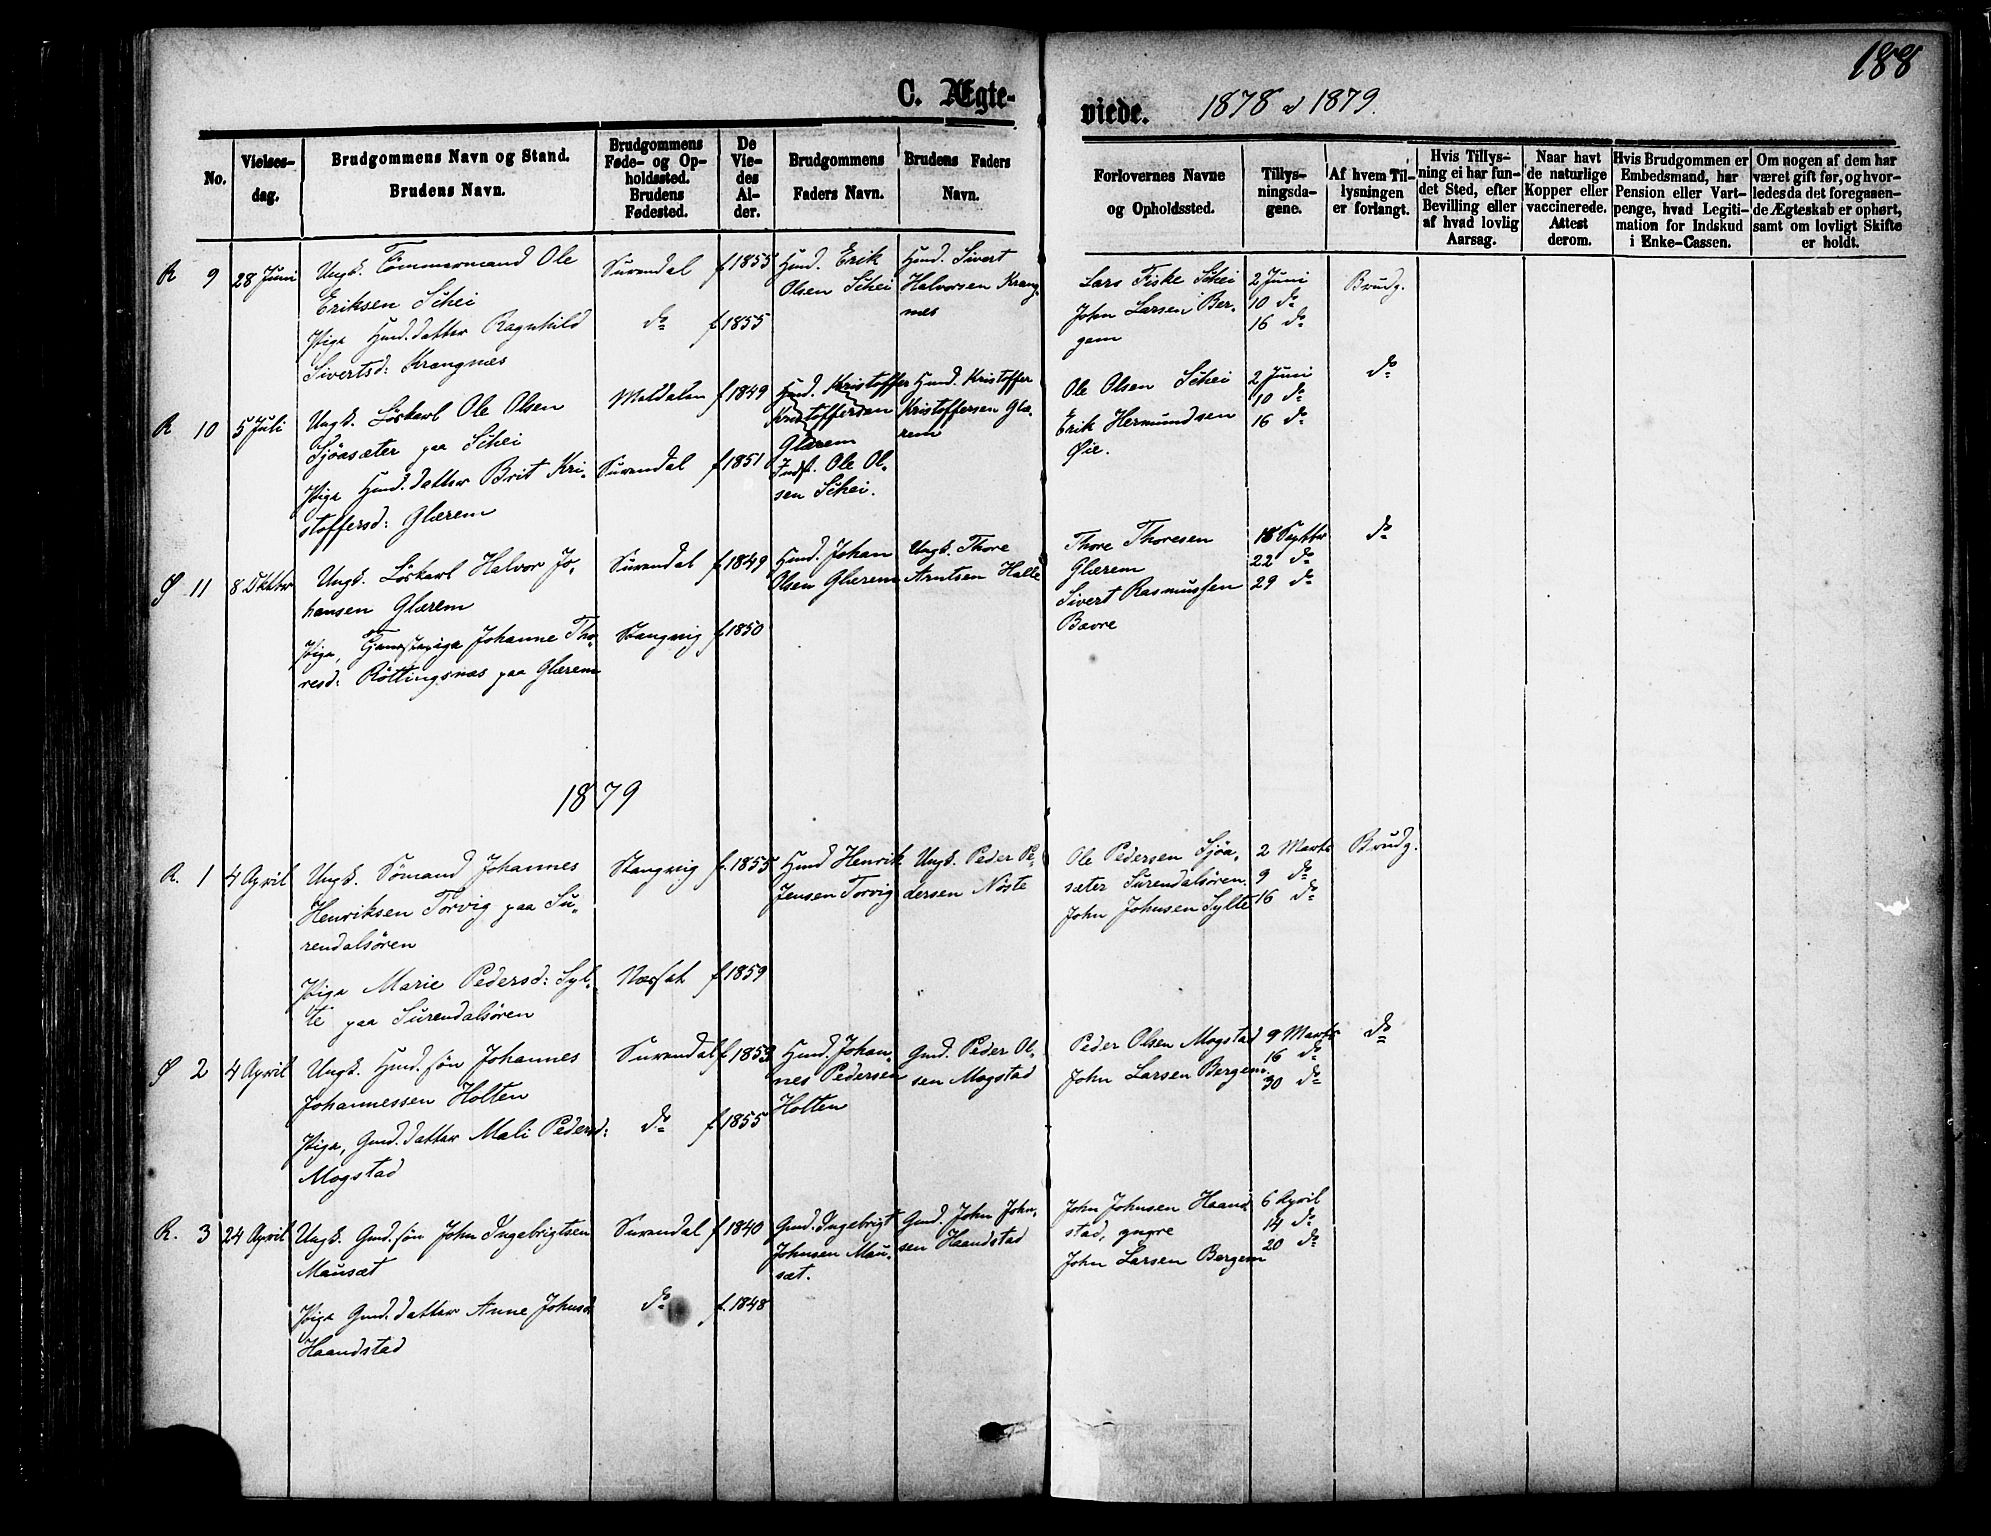 188
C. Ægte-
viede. 1878 & 1879.
No.
Vielses-
dag.
Brudgommens Navn og Stand.
Brudens Navn.
Brudgommens
Føde- og Op-
holdssted.
Brudens
Fødested.
De
Vie-
des
Al-
der.
Brudgommens
Faders Navn.
Brudens Faders
Navn.
Forlovernes Navne
og Opholdssted.
Tillys-
ningsda-
gene.
Af hvem Til-
lysningen
er forlangt.
Hvis Tillys-
ning ei har fun-
det Sted, efter
Bevilling eller
af hvad lovlig
Aarsag.
Naar havt
de naturlige
Kopper eller
vaccinerede.
Attest
derom.
Hvis Brudgommen er
Embedsmand, har
Pension eller Vart-
penge, hvad Legiti-
mation for Indskud
i Enke-Cassen.
Om nogen af dem har
været gift før, og hvor-
ledes da det foregaaen-
de Ægteskab er ophørt,
samt om lovligt Skifte
er holdt.
R 9
28 Juni
Ungk. Tømmermand Ole
Eriksen Schei
Pige Husmd. datter Ragnhild
Sivertsd: Krangnæs
Surendal
do
f 1855
f 1855
Husmd. Erik
Olsen Schei
Husmd. Sivert
Halvorsen Krang-
nes
Lars Fiske Schei
John Larsen Ber-
gem
2 Juni
10 do
16 do
Brudg.
R 10
5 Juli
Ungk. Løskarl Ole Olsen
Sjøasæter paa Schei
Pige Husmd. datter Brit Kri-
stoffersd: Glærem
Meldalen
Surendal
f 1849
f 1851
Husmd. Kristoffer
Kristoffersen
Glærem
Inds. Ole Ol-
sen Schei.
Husmd. Kristoffer
Kristoffersen Glæ-
rem
Ole Olsen Schei
Erik Hermundsen
Øie.
2 Juni
10 do
16 do
do
S 11
8 Oktbr
Ungk. Løskarl Halvor Jo-
hansen Glærem
Pige, Tjenestepige Johanne Tho-
resd: Røttingsnæs paa Glærem
Surendal
Stangvig
f. 1849
f. 1850
Husmd. Johan
Olsen Glærem
Ungk. Thore
Arntsen Halle
Thore Thoresen
Glærem
Sivert Rasmussen
Bævre
18 Septbr
22 do
29 do
do
1879
R. 1
4 April
Ungk. Sømand Johannes
Henriksen Torvig paa Su-
rendalsøren
Pige Marie Pedersd: Syl-
te paa Surendalsøren
Stangvig
Næsset
f. 1855
f. 1859
Husmd Henrik
Jensen Torvig
Ungk. Peder Pe-
dersen Nøste
Ole Pedersen Sjøa-
sæter Surendalsøren.
John Johnsen Sylte
2 Marts
9 do
16 do
Brudg.
S 2
4 April
Ungk. Husmd. søn Johannes
Johannessen Holten
Pige, Gmd. datter Mali Pedersd:
Mogstad
Surendal
do
f. 1853
f 1855
Husmd. Johan-
nes Pedersen
Holten
Gmd. Peder Ol-
sen Mogstad
Peder Olsen Mogstad
John Larsen Bergem.
9 Marts
16 do
30 do
do
R. 3
24 April
Ungk. Gmd. søn John Ingebrigtsen
Mausæt
Pige Gmd. datter Anne Johnsd
Haandstad
Surendal
do
f 1840
f. 1848
Gmd. Ingebrigt
Johnsen Mau-
sæt.
Gmd. John John-
sen Haandstad
John Johnsen Haand
stad, yngre
John Larsen Bergem
6 April
14 do
20 do